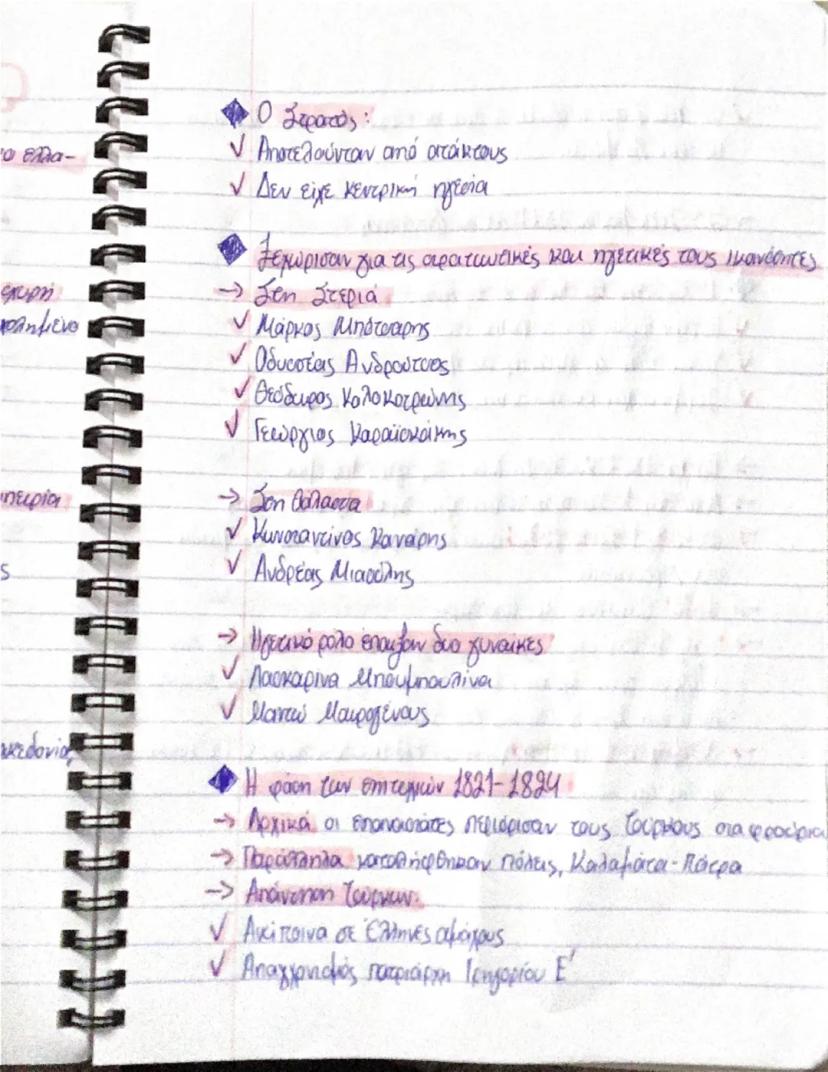 Ο Στρατός:
Αποτελούνταν από ατάκτους
Δεν είχε κεντρική ηγεσία
Ξεχώρισαν για τις στρατιωτικές και ηγετικές τους ικανότητες
→ Στη Στεριά
Μάρκος Μπότσαρης
Οδυσσέας Ανδρούτσος
Θεόδωρος Κολοκοτρώνης
Γεώργιος Καραϊσκάκης
→ Στη θάλασσα
Κωνσταντίνος Κανάρης
Ανδρέας Μιαούλης
→ Ηγετικό ρόλο έπαιξαν δυο γυναίκες
Λασκαρίνα Μπουμπουλίνα
Μαντώ Μαυρογένους
Η φάση των επιτυχιών 1821-1824
→ Αρχικά οι επαναστάτες περιόρισαν τους Τούρκους στα φρούρια
→ Παράλληλα καταλήφθηκαν πόλεις, Καλαμάτα-Πάτρα
→ Απάντηση Τούρκων:
Αντίποινα σε Έλληνες αμάχους
Απαγχονισμός πατριάρχη Γρηγορίου Ε'